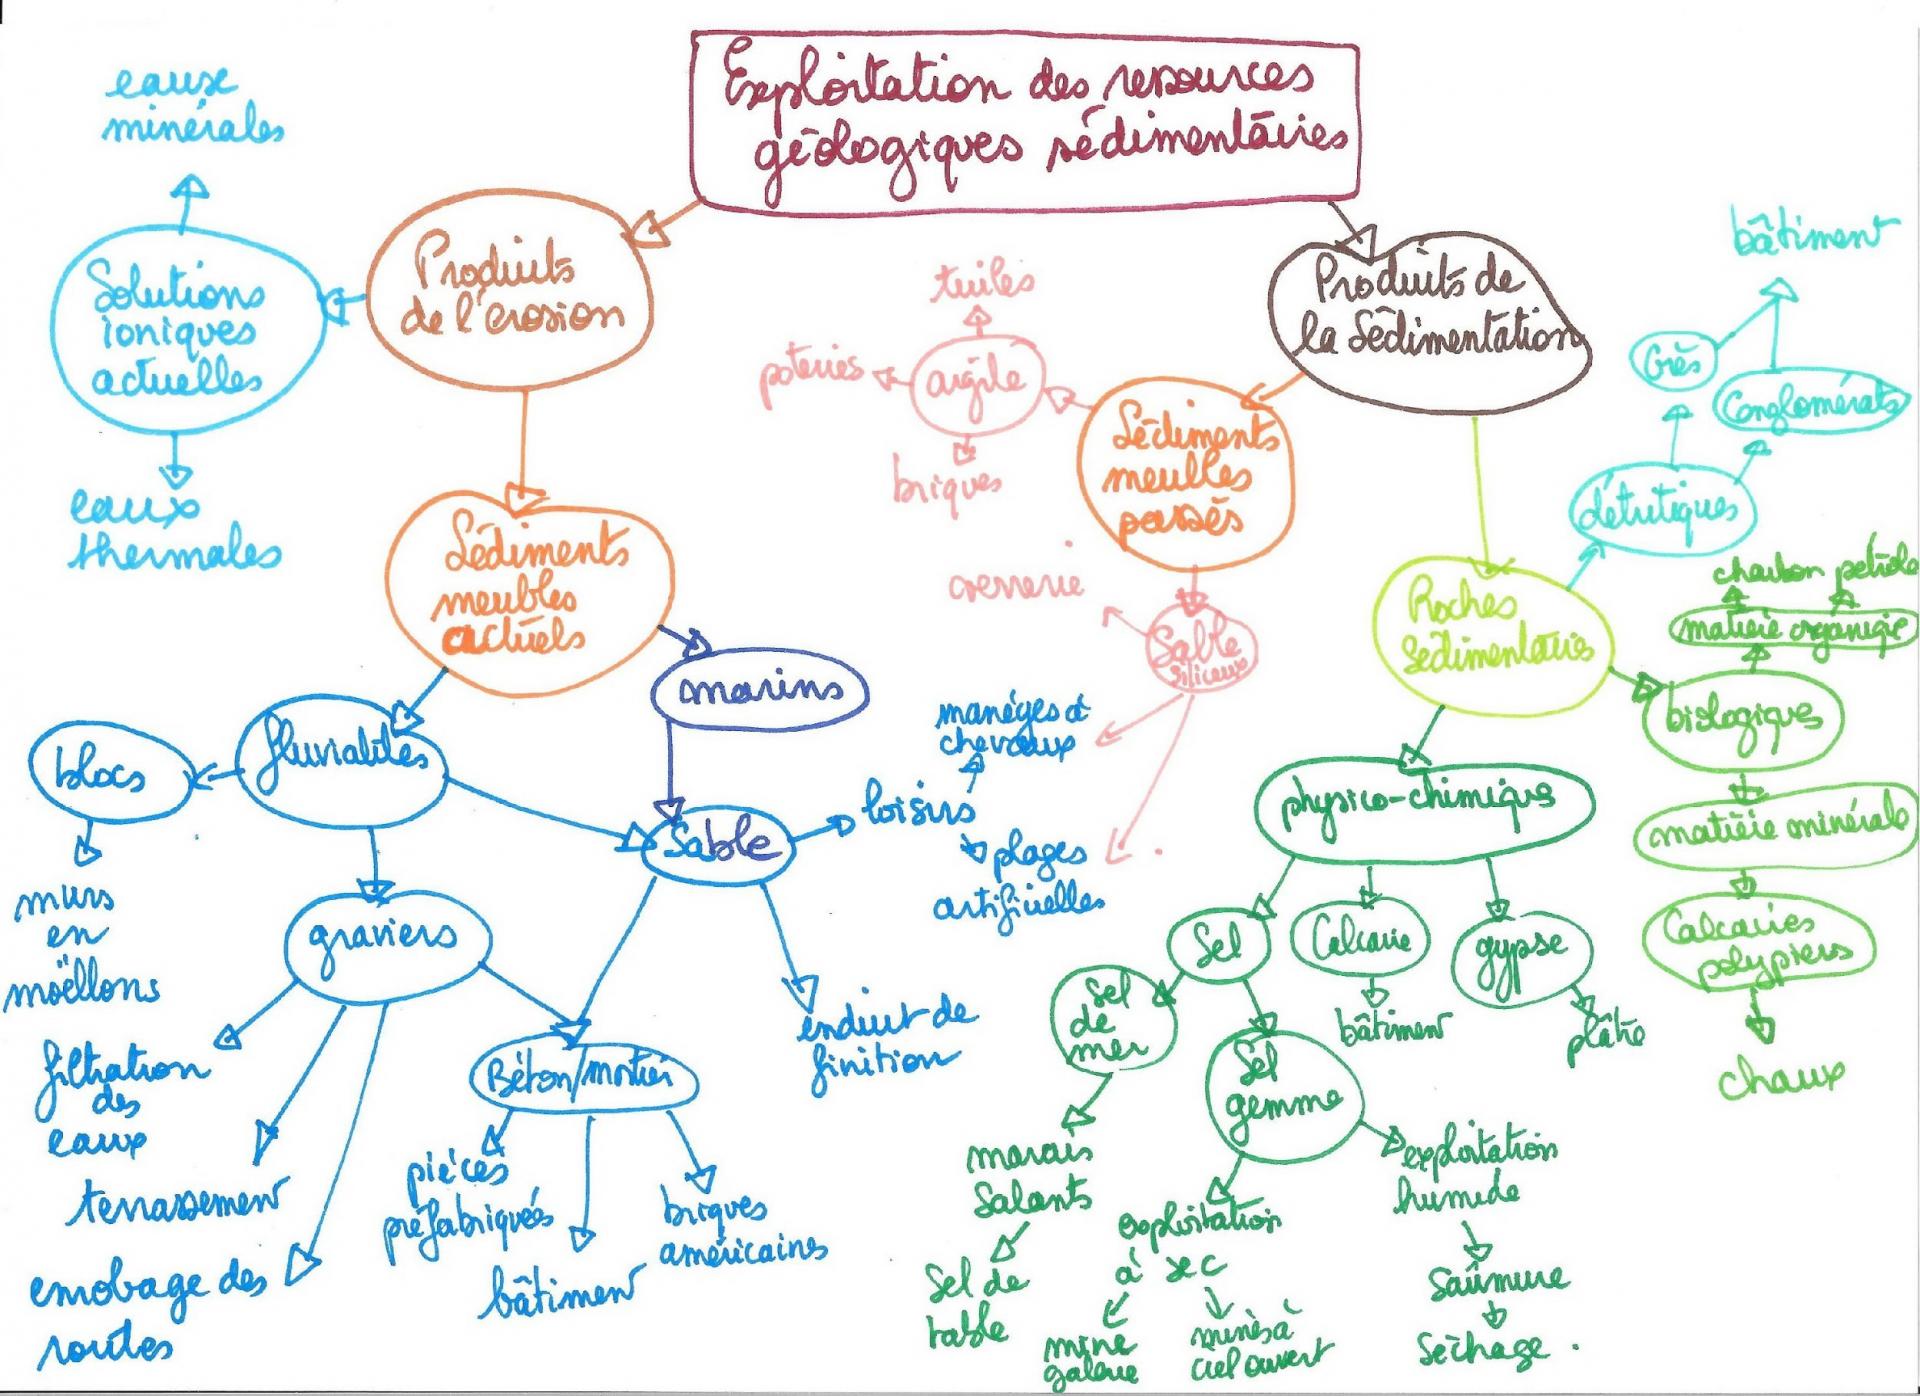 Exploitation des resources
géologiques sédimentaires
eaux
minérales
Solutions
ioniques
actuelles
eaux
thermales
Produits
de l'érosion
Produits de
la Sédimentation
Sédiments
meubles
actuels
marins
fluviatiles
blocs
murs
en
moëllons
graviers
filtration
des
eaux
terrassement
enrobage des
routes
Sable
loisirs
manéges à
chevaux
plages
artificielles
enduit de
finition
Béton/mortier
piéces
préfabriqués
bâtiment
briques
américaines
Sédiments
meubles
passés
argile
tuiles
poteries
briques
Sable
siliceux
verrerie
Roches
Sédimentaires
détritiques
Grès
Conglomérats
bâtiment
biologiques
matière organique
charbon pétrole
matière minérale
Calcaires
polypiers
chaux
physico-chimique
Sel
Calcaire
bâtiment
gypse
plâtre
Sel
de
mer
marais
Salants
Sel de
table
Sel
gemme
exploitation
à sec
mine
galerie
mines à
ciel ouvert
exploitation
humide
Saûmure
Séchage.